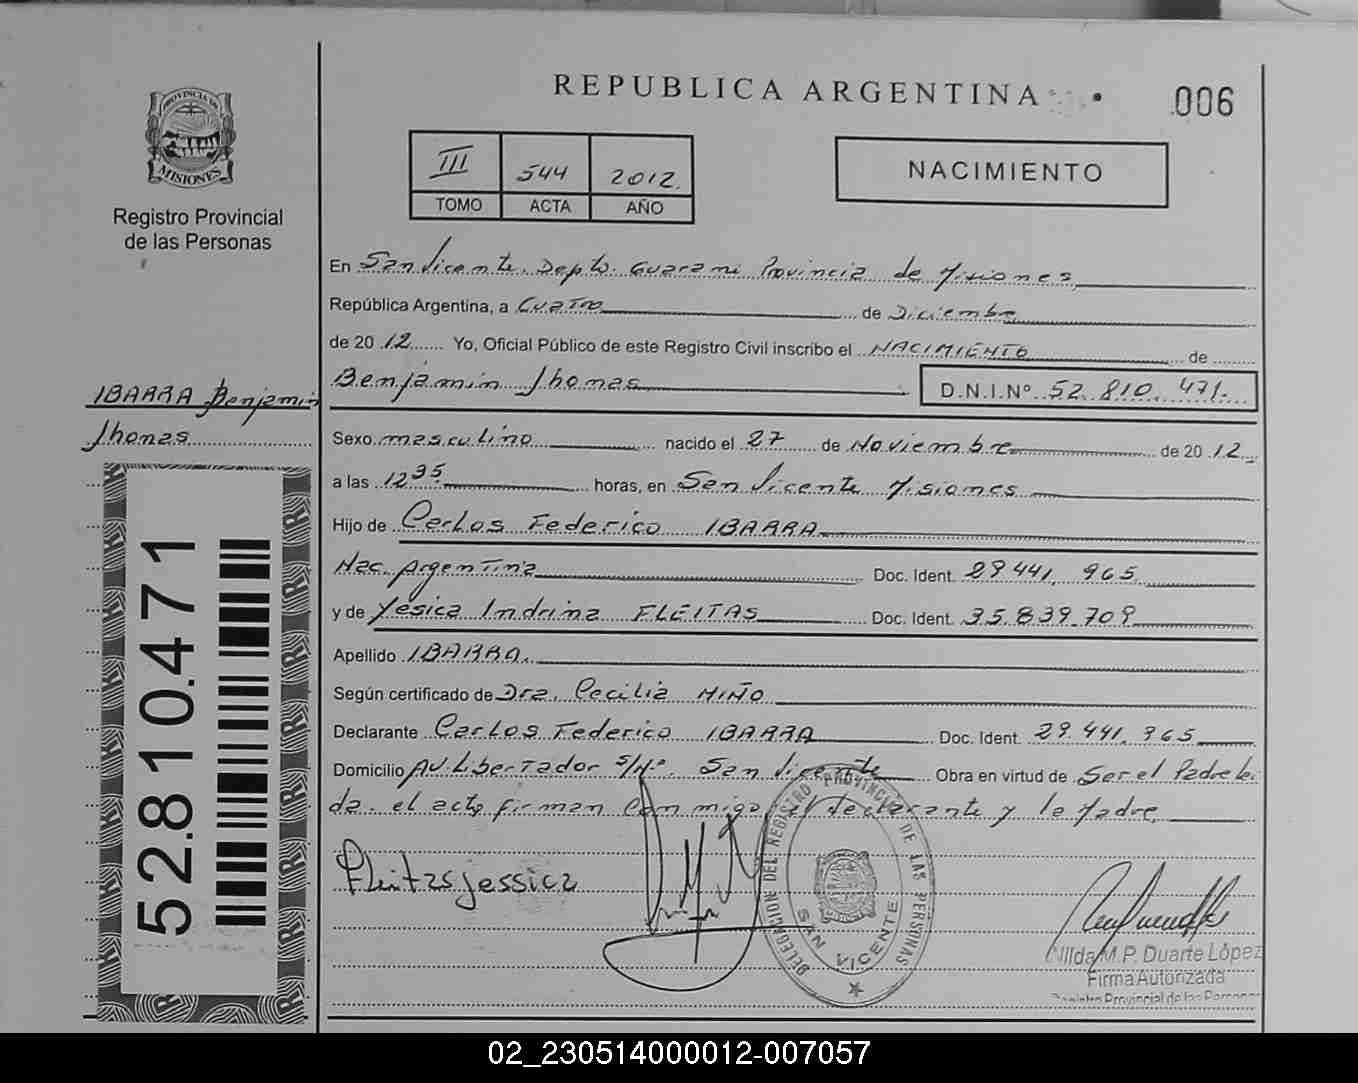 REPUBLICA ARGENTINA
006
PROVINCIA DE
MISIONES
Registro Provincial
de las Personas
III 544 2012.
TOMO ACTA AÑO
NACIMIENTO
En San Vicente, Depto. Guarani Provincia de Misiones
República Argentina, a Cuatro de Diciembre
de 20 12 Yo, Oficial Público de este Registro Civil inscribo el NACIMIENTO de
Benjamin Jhonas D.N.I.Nº 52.810.471.
IBARRA Benjamin
Jhonas
Sexo masculino nacido el 27 de Noviembre de 20 12
a las 12 35 horas, en San Vicente Misiones
Hijo de Carlos Federico IBARRA
Nac. Argentina Doc. Ident. 29.441.965
y de Yesica Indrina FLEITAS Doc. Ident. 35.839.709
Apellido IBARRA
Según certificado de Dra. Cecilia MIÑO
Declarante Carlos Federico IBARRA Doc. Ident. 29.441.965
Domicilio AV. Libertador S/Nº. San Vicente Obra en virtud de Ser el Padre Lei
da el acta firman conmigo el declarante y la Madre
52.810.471
Fleitas jessica
DELEGACION DEL REGISTRO PROVINCIAL DE LAS PERSONAS
SAN VICENTE
Nilda M.P. Duarte López
Firma Autorizada
Registro Provincial de las Personas
02_230514000012-007057